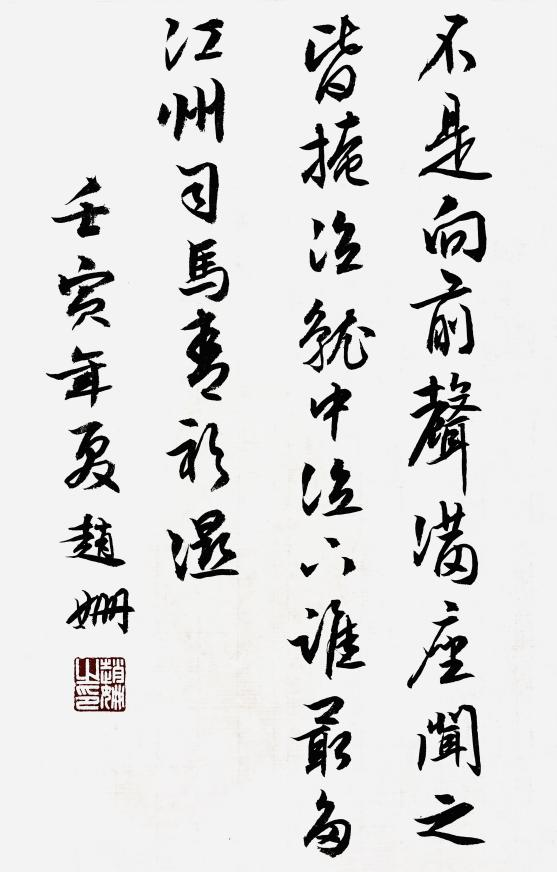 不是向前聲滿座聞之
皆掩泣就中泣下誰最多
江州司馬青衫濕
壬寅年夏趙姍
趙姍之印